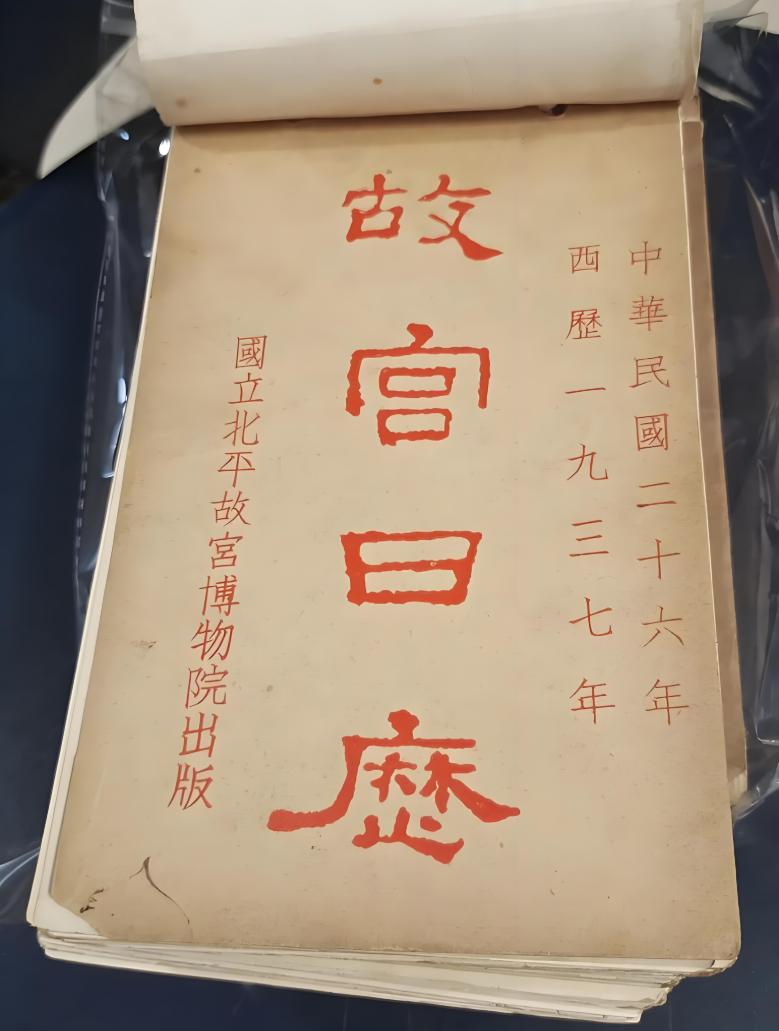 中華民國二十六年
西歷一九三七年
故宮日歷
國立北平故宮博物院出版